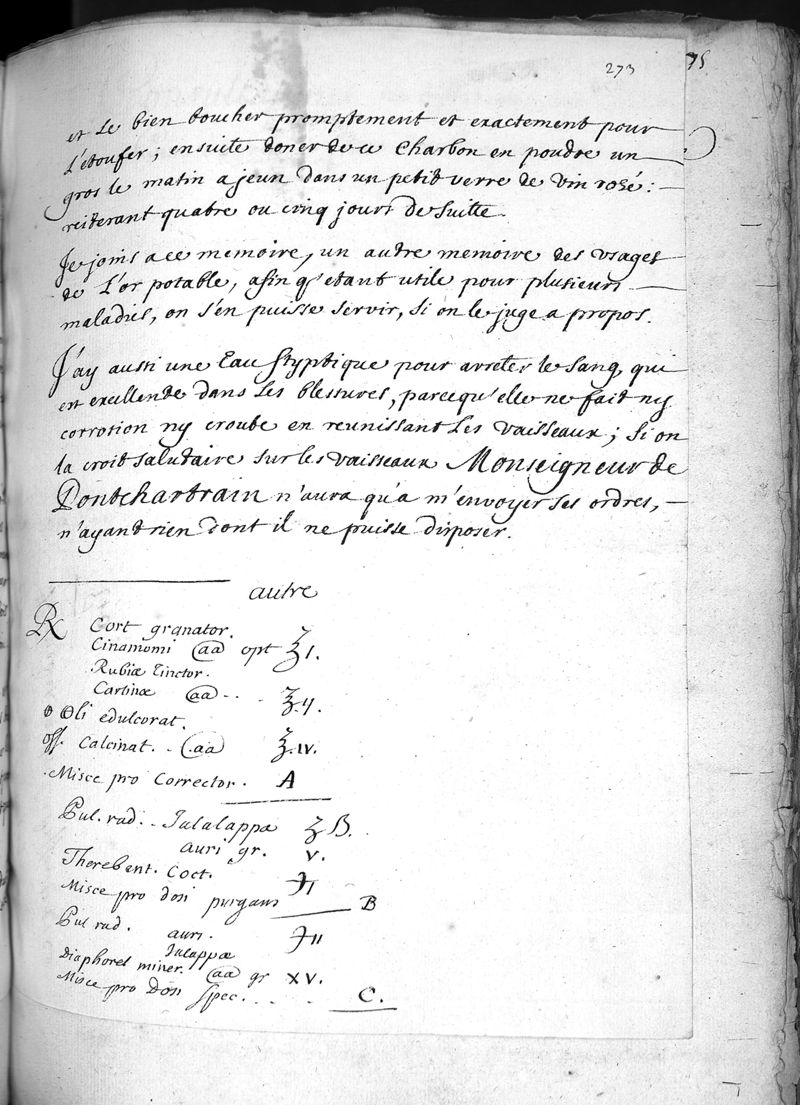 273
75
et le bien boucher promptement et exactement pour
l'étoufer; ensuite doner de ce Charbon en poudre un
gros le matin a jeun dans un petit verre de vin rosé:
reiterant quatre ou cinq jours de suitte.
Je joins a ce memoire, un autre memoire des vsages
de L'or potable, afin q'etant utile pour plusieurs
maladies, on s'en puisse servir, si on le juge a propos.
J'ay aussi une Eau styptique pour arreter le sang, qui
est excellende dans les blessures, parcequ'elle ne fait ny
corrosion ny croute en reunissant les vaisseaux; si on
la croit salutaire sur les vaisseaux Monseigneur de
Pontchartrain n'aura qu'a m'envoyer ses ordres,
n'ayant rien dont il ne puisse disposer.
autre
℞ Cort granator.
Cinamomi aa opt ℥ I.
Rubiæ tinctor.
Cartinæ aa .. ℥.ij.
Oli edulcorat.
off. Calcinat. . aa ℥.IV.
Misce pro Corrector. A
Pul. rad. . Jalalappa ʒ B.
auri gr. V.
Therebent. Coct. ℈I
Misce pro dosi purgans B
Pul rad. auri. ℈II
Jalappæ
Diaphoret miner. aa gr XV.
Misce pro Dosi spec. . . . . C.